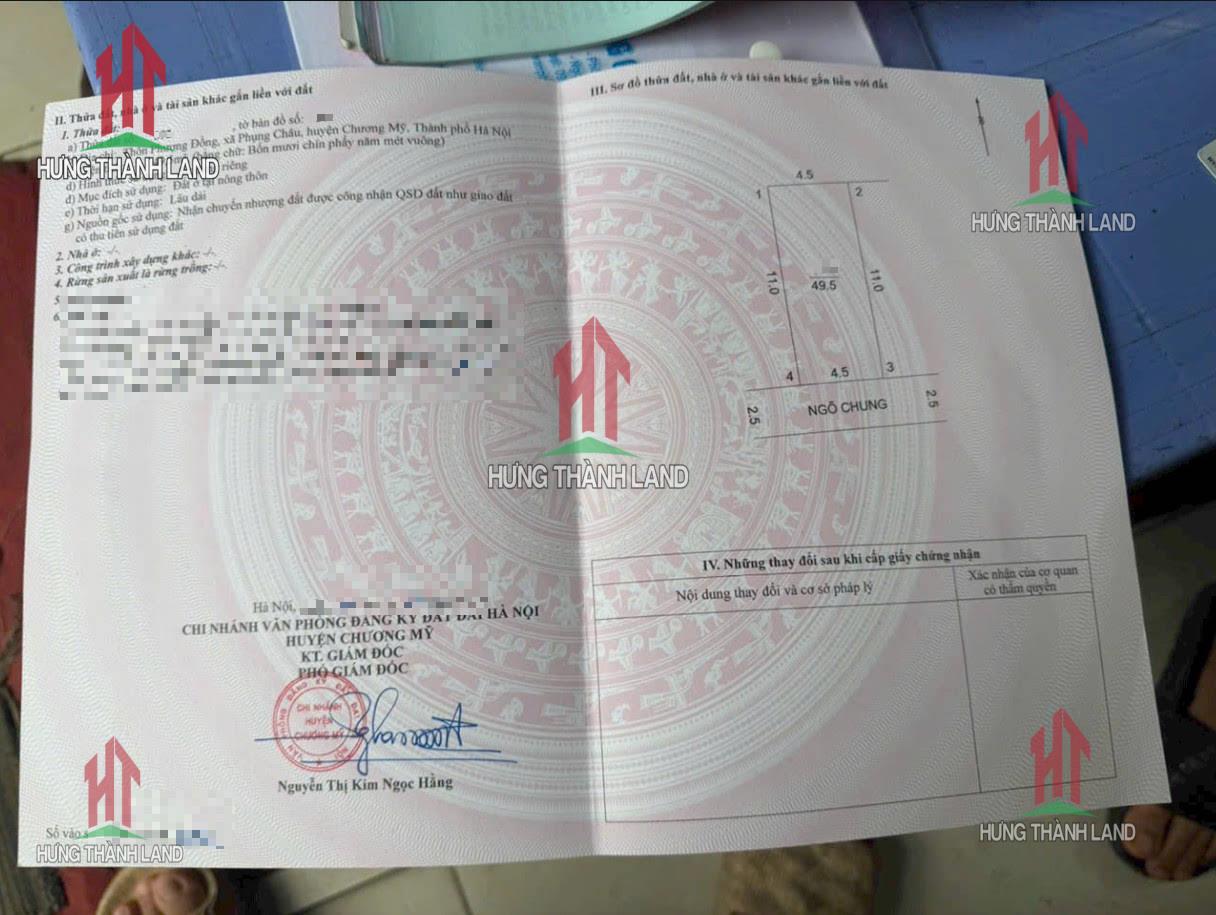 II. Thửa đất, nhà ở và tài sản khác gắn liền với đất
1. Thửa đất:
a) Thửa , tờ bản đồ số:
Thôn Phượng Đồng, xã Phụng Châu, huyện Chương Mỹ, Thành phố Hà Nội
(bằng chữ: Bốn mươi chín phẩy năm mét vuông)
riêng
d) Mục đích sử dụng: Đất ở tại nông thôn
e) Thời hạn sử dụng: Lâu dài
g) Nguồn gốc sử dụng: Nhận chuyển nhượng đất được công nhận QSD đất như giao đất
có thu tiền sử dụng đất
2. Nhà ở: -/-
3. Công trình xây dựng khác: -/-
4. Rừng sản xuất là rừng trồng: -/-
5
6
Hà Nội,
CHI NHÁNH VĂN PHÒNG ĐĂNG KÝ ĐẤT ĐAI HÀ NỘI
HUYỆN CHƯƠNG MỸ
KT. GIÁM ĐỐC
PHÓ GIÁM ĐỐC
CHI NHÁNH
HUYỆN
CHƯƠNG MỸ
Nguyễn Thị Kim Ngọc Hằng
Số vào s
III. Sơ đồ thửa đất, nhà ở và tài sản khác gắn liền với đất
4.5
1
2
11.0
49.5
11.0
4
4.5
3
2.5
NGÕ CHUNG
2.5
IV. Những thay đổi sau khi cấp giấy chứng nhận
Nội dung thay đổi và cơ sở pháp lý
Xác nhận của cơ quan
có thẩm quyền
HƯNG THÀNH LAND
HƯNG THÀNH LAND
HƯNG THÀNH LAND
HƯNG THÀNH LAND
HƯNG THÀNH LAND